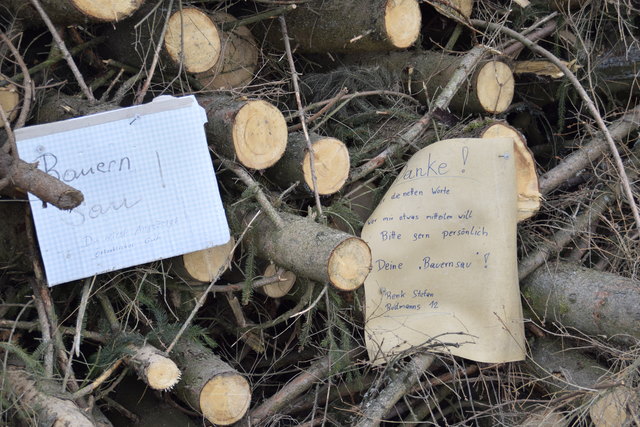 Bauern !
Sau
anke !
die netten Worte
wer mir etwas mitteilen will
Bitte gern persönlich
Deine "Bauernsau"!
Stefan
12